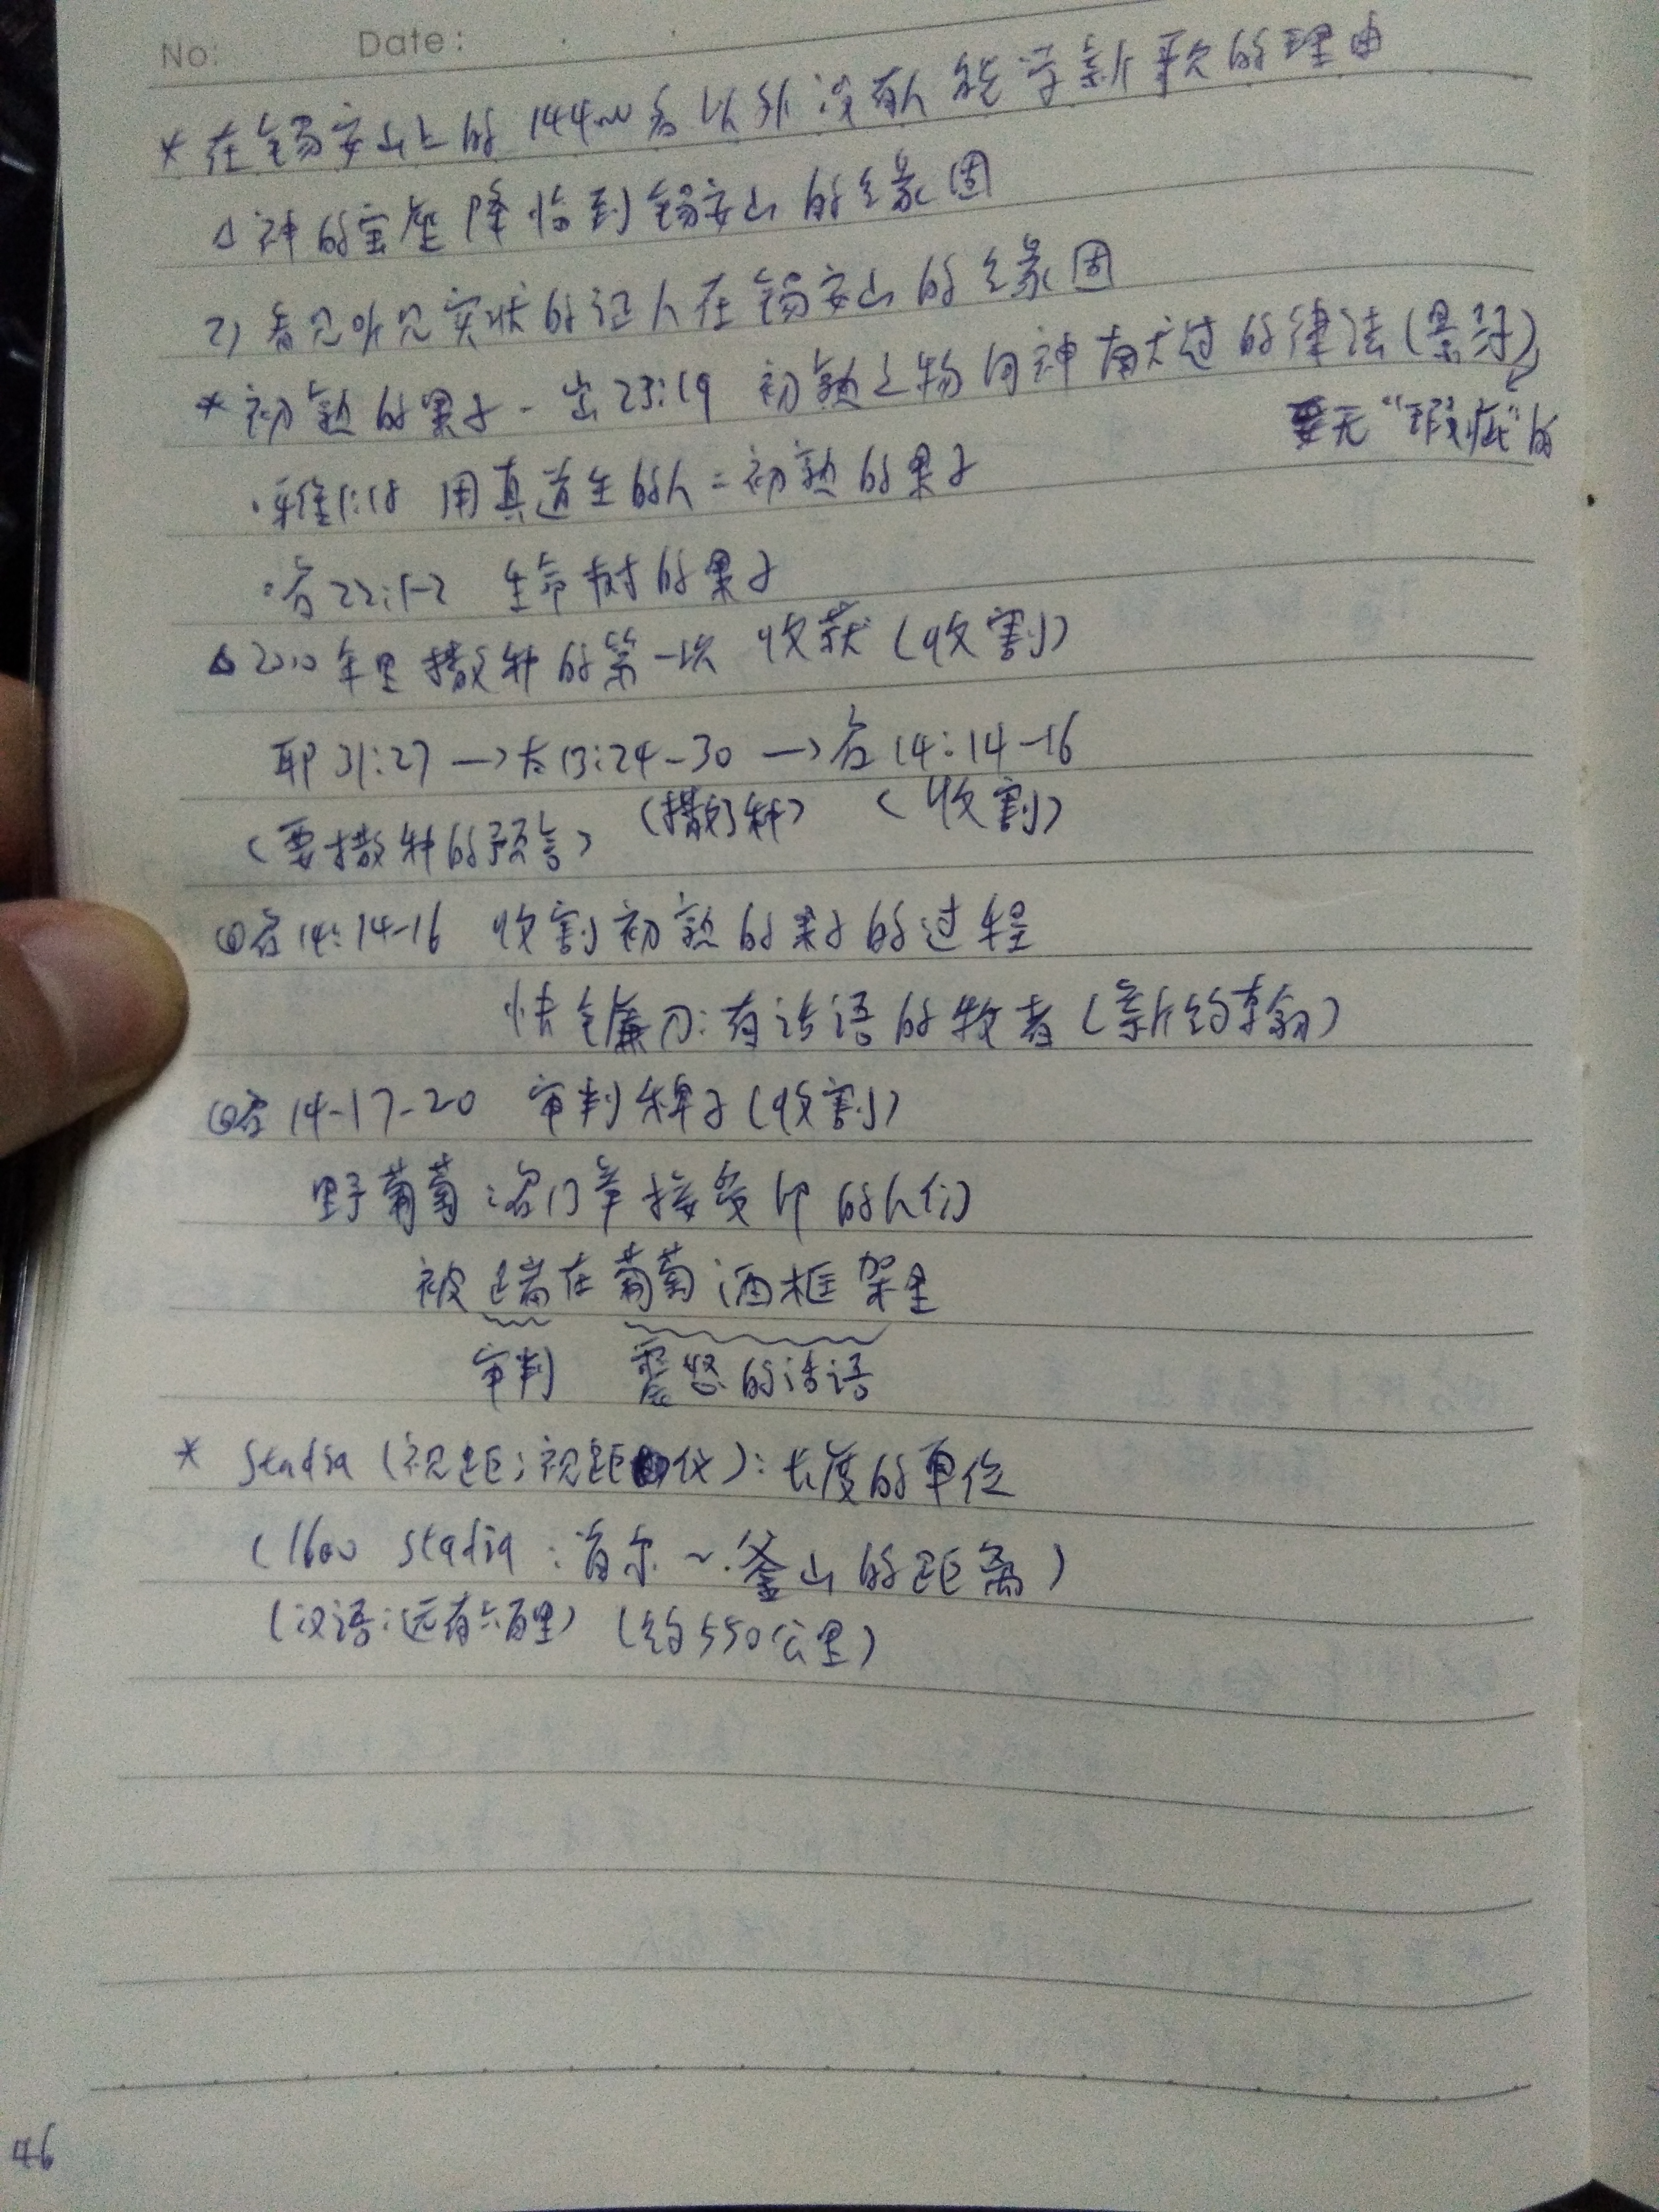 No: Date:
* 在锡安山上的144000名以外没有人能学新歌的理由
△神的宝座降临到锡安山的缘固
2) 看见听见实状的证人在锡安山的缘固
* 初熟的果子 - 出23:19 初熟之物向神献过的律法(景)
要无“瑕疵”的
·雅1:18 用真道生的人=初熟的果子
·启22:1-2 生命树的果子
△2000年里撒种的第一次 收获(收割)
耶31:27 → 太13:24-30 → 启14:14-16
(要撒种的预言) (撒好种) (收割)
@启14:14-16 收割初熟的果子的过程
快镰刀:有话语的牧者(新约)
@启14-17-20 审判稗子(收割)
野葡萄:名门接受印的人们
被踹在葡萄酒框架里
审判 震怒的话语
* Stadia (视距;视距仪):长度的单位
(1600 stadia:首尔~釜山的距离)
(汉语:远有六百里) (约550公里)
46